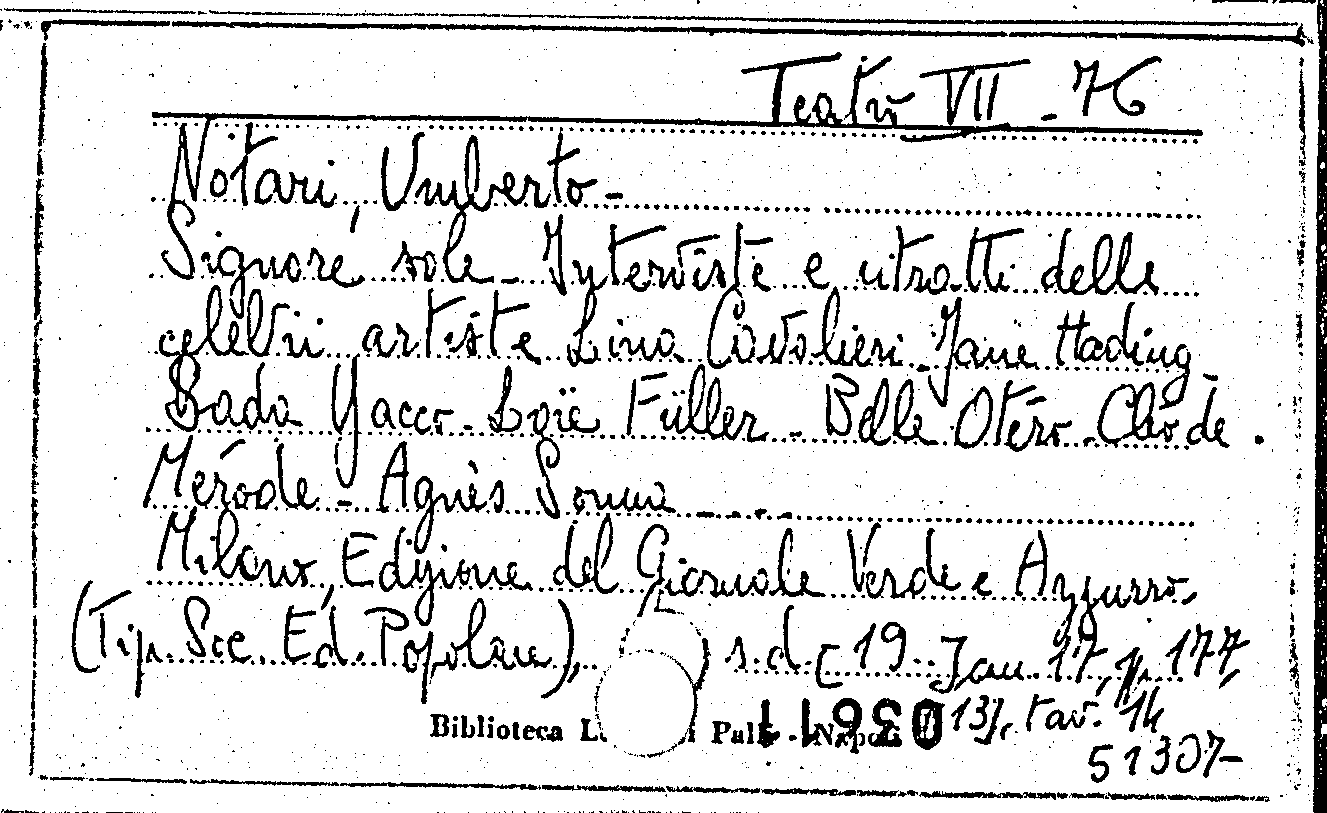 Teatro VII - 76
Notari, Umberto -
Signore sole - Interviste e ritratti delle
celebri artiste Lina Cavalieri - Jane Hading -
Sada Yacco - Loïe Füller - Belle Otéro - Cléo de
Mérode - Agnès Sorma - . . .
Milano, Edizione del Giornale Verde e Azzurro
(Tip. Soc. Ed. Popolare), s.d. [19..] in 17, p. 177,
[3], tav. 14
Biblioteca - Napoli
03611
51307-